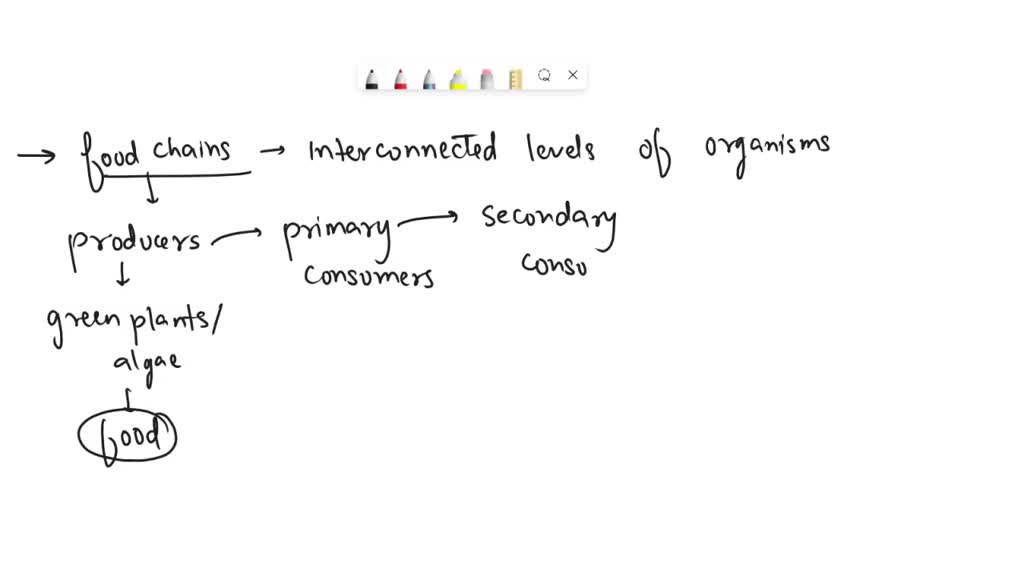 → food chains → Interconnected levels of organisms
producers → primary consumers → secondary conso
green plants/
algae
food